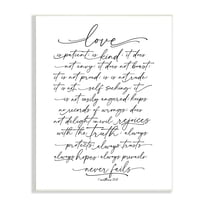 love
is patient is kind it does
not envy it does not boast
it is not proud is not rude
it is not self seeking it
is not easily angered keeps
no records of wrongs does
not delight in evil rejoices
with the truth always
protects always trusts
always hopes always prevails
never fails